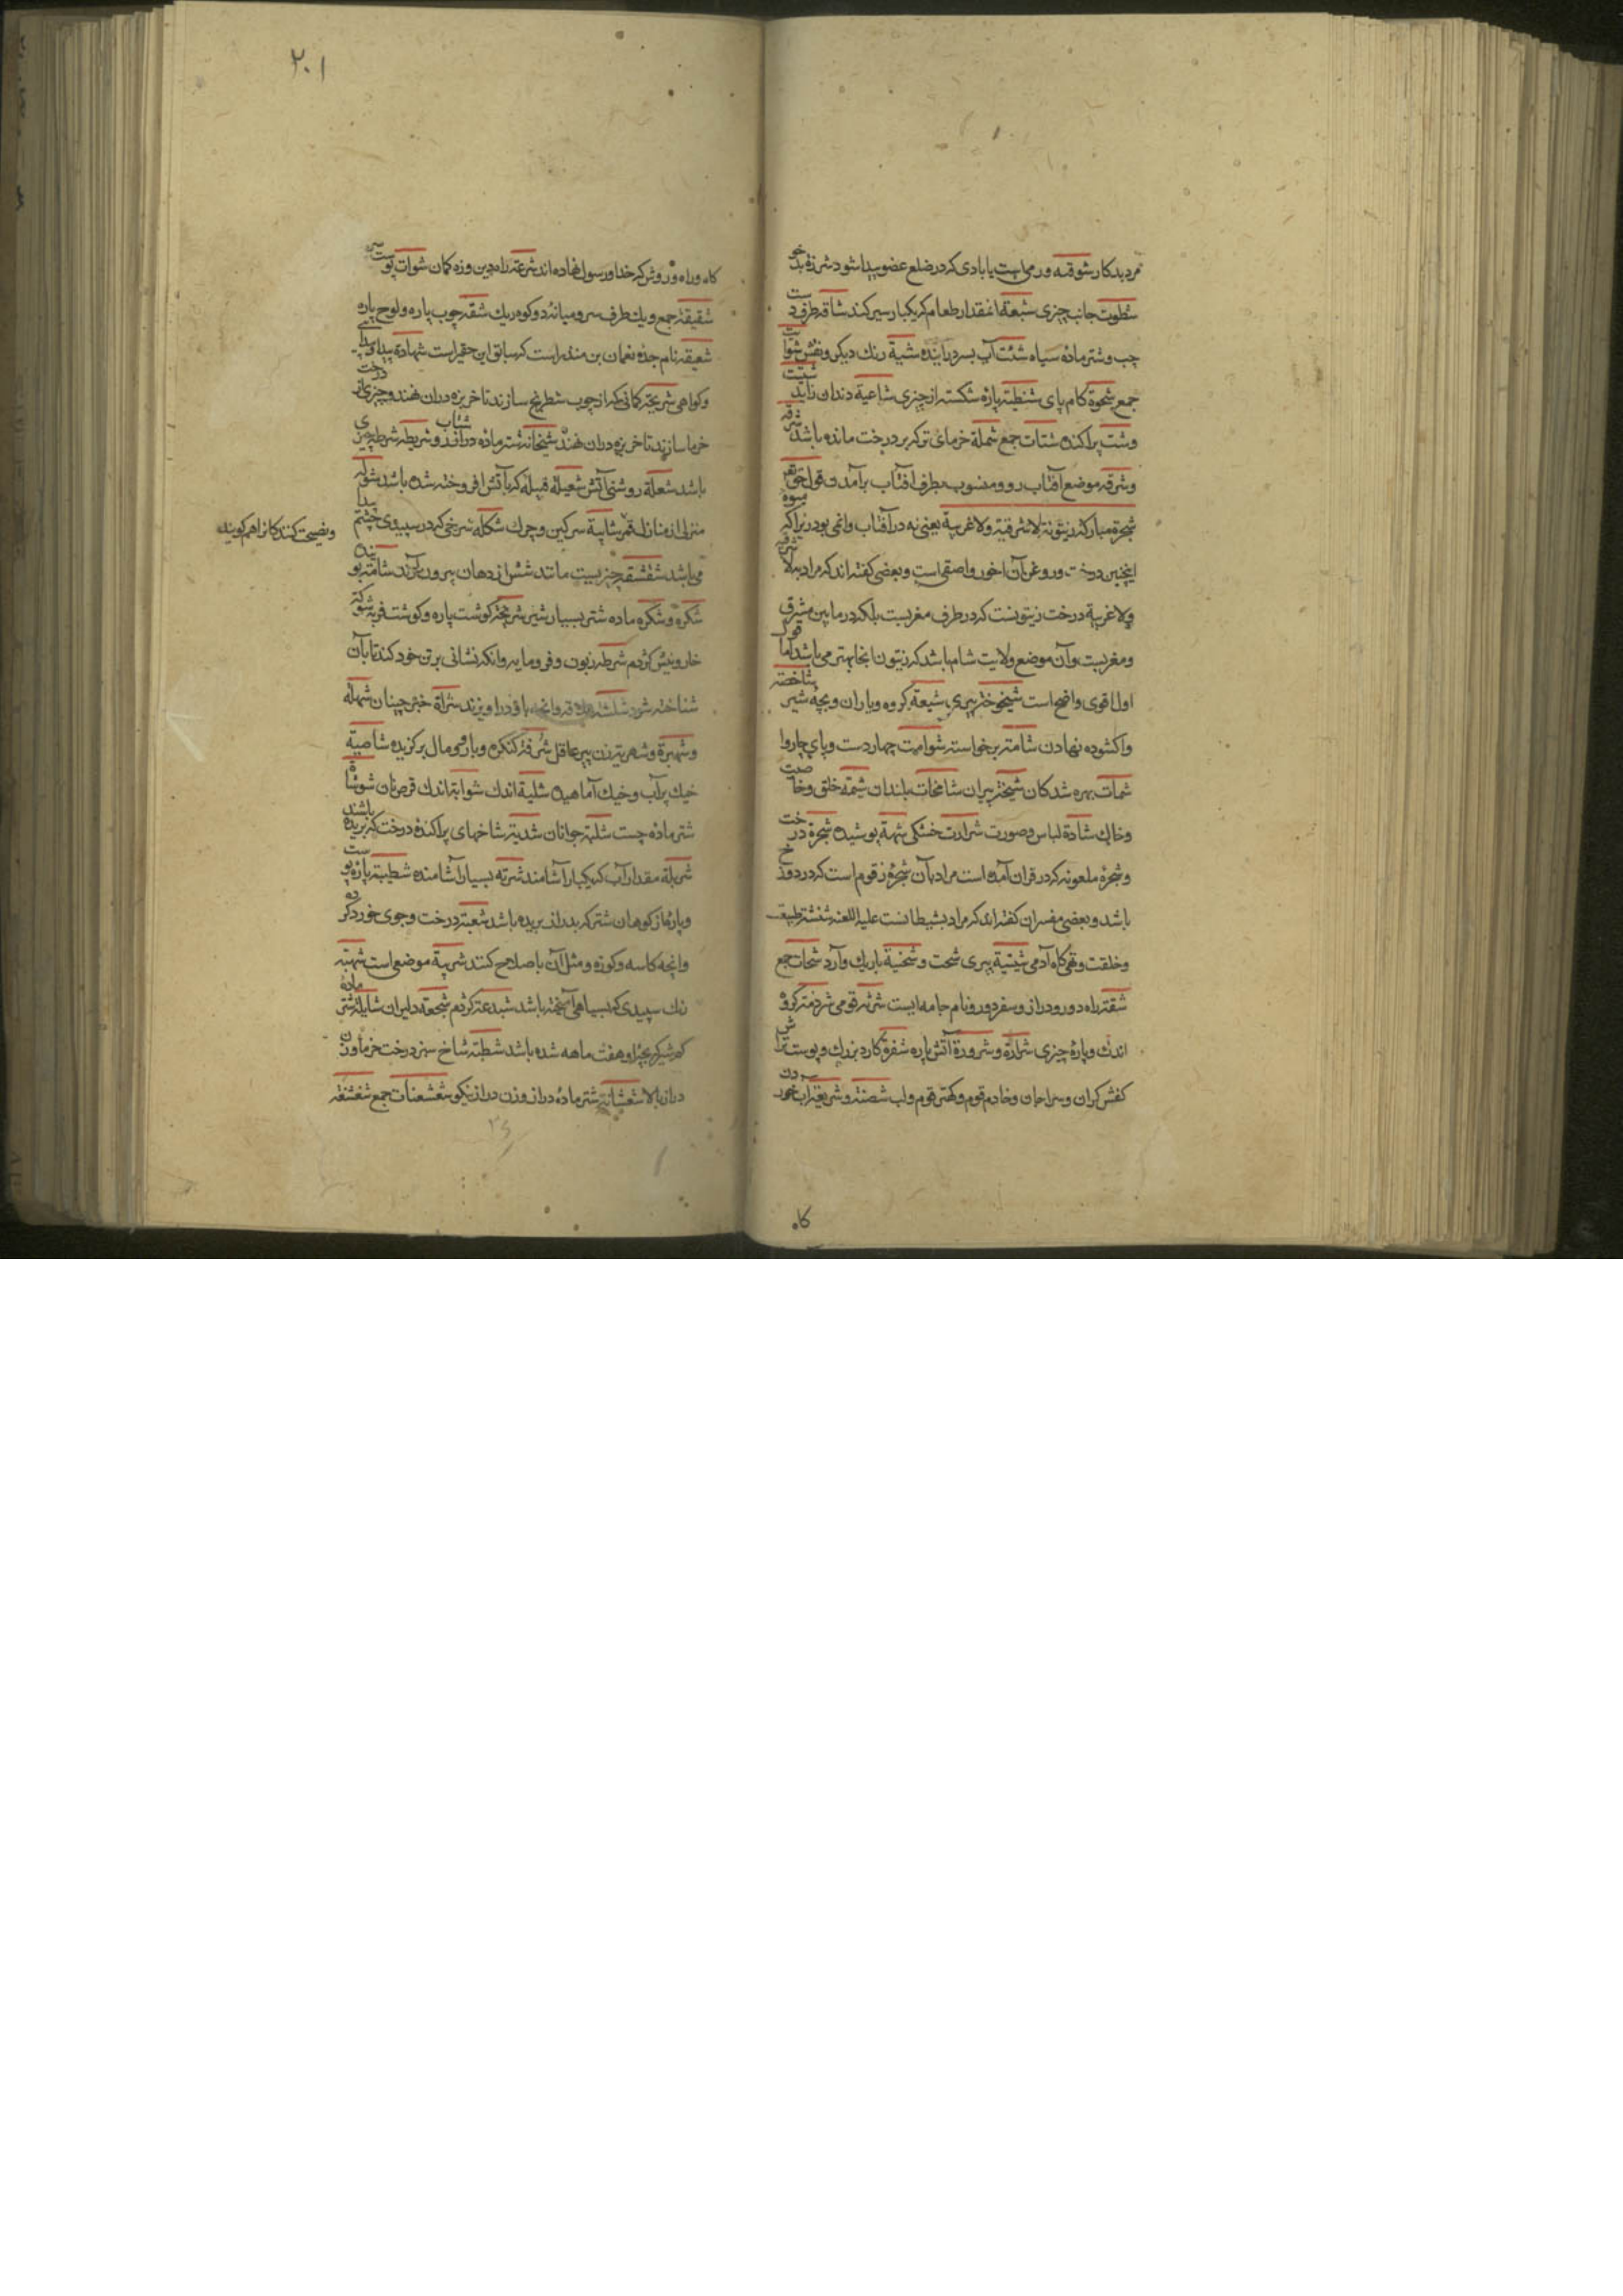 مرد بدکار شوقه ورمی است یا بادی که در ضلع عضو پیدا شود شرزة بدخو
شطوت جانب چیزی شبعة انمقدار طعام که یکبار سیر کند شاقه طرف دست
چپ وشتر مادۀ سیاه شیة رنك دیکر ونقش شوات
جمع شحوة کام پای شنظیة پارۀ شکسته از چیزی شاعیة دندان زاید شیت
وشت پراکنده شتات جمع شملة خرمای تر که بر درخت مانده باشد شرقه
وشرقه موضع آفتاب رو ومنسوب بطرف افتاب برآمد وقوله تعالی
شجرة مبارکة زیتونة لاشرقیة ولاغربیة یعنی نه در آفتاب دائمی بود زیراکه میوه
اینچنین درخت وروغن آن اخور واصفی است وبعضی کفته اند که مراد به لا شرقیه
ولاغربیة درخت زیتونست که در طرف مغربست بلکه در مابین مشرق
ومغربست وآن موضع ولایت شام باشد که زیتون انجا بهتر می باشد اما قول
اول اقوی واضح است شیخوخة پیری شیعة کروه ویاران وبچۀ شیر شاخصه
واکشوده نهادن شامته برخواسته شوامت چهار دست وپای چاروا
شمات بهره شدکان شیخة پیران شامخات بلندان شیمة خلق وخاصیت
وخاك شادة لباس وصورت شرارت خشکی شهبة پوشیده شجرة درخت
وشجرۀ ملعونه که در قران آمده است مراد بآن شجرۀ زقوم است که در دوزخ
باشد وبعضی مفسران کفته اند که مراد بشیطانست علیه اللعنه شنشنة طبیعت
وخلقت وتهی کاه آدمی شیبة پیری شحت وشخنیة باریك وآرد شحات جمع
شقة راه دور ودراز وسفر دور ونام جامه ایست شرثه قومی شرذمة کروه
اندك وپارۀ چیزی شرارة وشرورة آتش پاره شفرة کارد بزرك وپوست تراش
کفش کران وسراجان وخادم قوم وکهتر قوم ولب شصنة وشریعة آب خوردن
کاه
۲۰۱
کاه وراه وروش که خدا ورسول نهاده اند شرعة راه دین وزه کمان شوات پوست سر
شقیقة جمع ویك طرف سر ومیانۀ دو کوه ریك شقة چوب پاره ولوح پاره
شقیقه نام جدۀ نعمان بن منذر است شهادة پیدا
وکواهی شریجة کمانی که از چوب شطرنج سازند تا خربزه دران نهند وچیزی از درخت
خرما سازند تا خربزه دران نهند شیخانة شتر مادۀ دراز رو شریطة شرط چیزی شتاب
باشد شعلة روشنی آتش شعیلة فتیله که بآتش افروخته شده باشد شوله
منزلی از منازل قمر شایبة سرکین وچرك شکلة سرخی که در سپیدی چشم پیدا
می باشد شقشقه چیزیست مانند شش از دهان بیرون آورند شامة بوینده
شکره وشکره ماده شتر بسیار شیر شریحة کوشت پاره وکوشت فربه شوکة
خار ونیش کژدم شرطه زبون وفرومایه وانکه نشانی برتن خود کند تا بآن
شناخته شود وانچه درا ویزند شراة خبر چینان شهلة
وشهبرة وشهربة زن پیر عاقل شرفة کنکره وباروی مال برکزیده شاصیة
خیك پر آب وخیك آماهیده شلیة اندك شوابة اندك قرص نان شوشاة
شتر مادۀ چست شلبة جوانان شدیة شاخهای پراکندۀ درخت که بریده باشند
شربة مقدار آب که یکبار آشامند شربه بسیار آشامنده شطیبة پاره پوست
وپارۀ از کوهان شتر که بدراز بریده باشد شعبة درخت وجوی خورد که
وانچه کاسه وکوزه ومثل آن باصلاح کنند شربة موضعی است شهبة
رنك سپیدی که بسیاهی آمیخته باشد شبدعة کژدم شجعة دلیران شایلة شتر ماده
کم شیر که بچۀ او هفت ماهه شده باشد شطبة شاخ سبز درخت خرما وزن
دراز بالا شعشانة شتر مادۀ دراز وزن دراز نیکو شعشعنات جمع شفشقة
ونصیحت کنندکانرا هم کویند